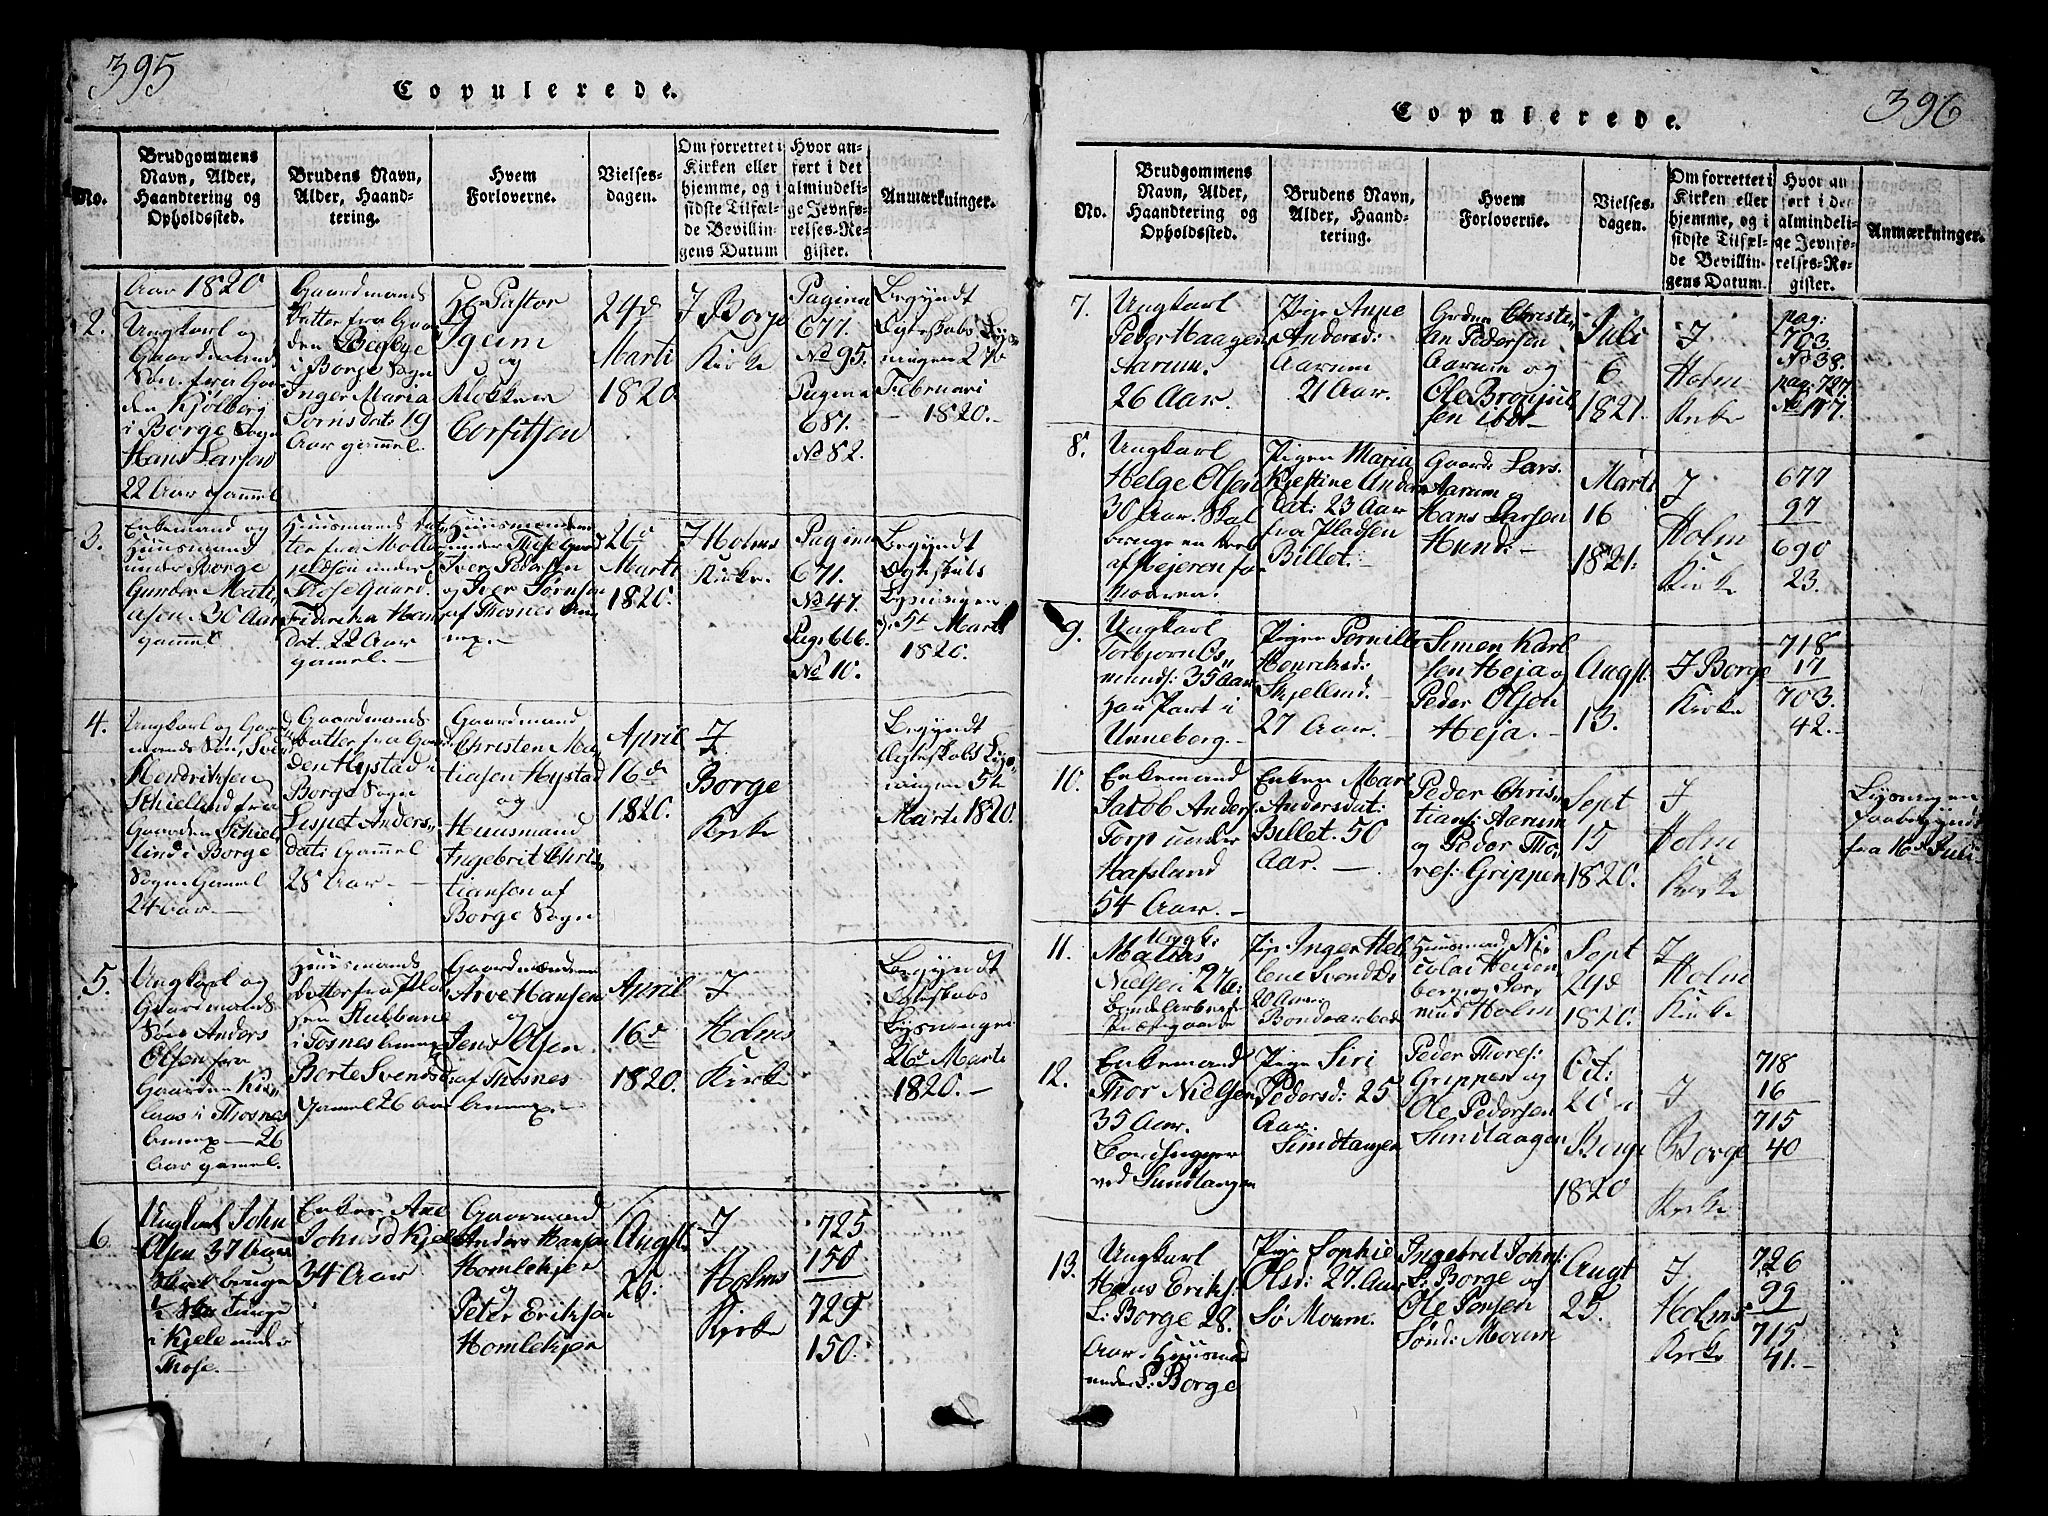 395
Copulerede.
No.
Brudgommens
Navn, Alder,
Haandtering og
Opholdssted.
Brudens Navn,
Alder, Haand-
tering.
Hvem
Forloverne.
Vielses-
dagen.
Om forrettet i
Kirken eller
hjemme, og i
sidste Tilfæl-
de Bevillin-
gens Datum
Hvor an-
ført i det
almindeli-
ge Jevnfø-
relses-Re-
gister.
Anmærkninger.
Aar 1820
2.
Ungkarl og
Gaardmands
Søn fra Gaar
den Kjølberg
i Borge Sogn
Hans Larsen
22 Aar gammel
Gaardmands
Datter fra Gaar
den Begbye
i Borge Sogn
Inger Maria
Sørnsdat 19
Aar gammel.
Hr Pastor
Igum
og
Klokker
Corfitsen
24d
Marti
1820
I Borge
Kirke
Pagina
677.
No 95.
Pagina
687.
No 82.
Begyndt
Egteskabs Lys
ningen 27d
Februari
1820.
3.
Enkemand og
Huusmand
under Borge
Gunder Mati
asen. 30 Aar
gammel.
Huusmands Dat
ter fra Molle
pladsen under
Thosegaard.
Fridricka Hans
dat. 22 Aar
gamel.
Huusmændene
under Thosegaard
Iver Pedersen
og Iver Sørnsen
af Thosnes An
nex.
26d
Marti
1820.
I Holms
Kirke.
Pagina
671.
No 47.
Pag: 666.
No 10.
Begyndt
Egteskabs
Lysningen
5t Marti
1820.
4.
Ungkarl og Gaard
mands Søn, Sven
Hendriksen
Schiellind fra
Gaarden Schiel
lind i Borge
Sogn Gamel
24 Aar.
Gaardmands
Datter fra Gaar
den Hystad i
Borge Sogn
Lispet Anders
dats gammel
28 Aar.
Gaardmand
Christen Ma
tiasen Hystad
og
Huusmand
Ingebrit Chris
tiansen af
Borge Sogn
April
16d
1820.
I
Borge
Kirke
Begyndt
Egteskabs Lys
ningen 5te
Marti 1820.
5.
Ungkarl og
Gaardmands
Søn Anders
Olsen fra
Gaarden Kir
i Thosnes
annex - 26
Aar gamel.
Huusmands
Datter fra Pla
sen Hubbane
i Tosnes annex
Borte Svensd
Gamel 26 Aar
Gaardmændene
Arve Hansen
og
Jens Olsen
af Thosnes
annex.
April
16d
1820.
I
Holms
Kirke
Begyndt
Egteskabs
Lysningen
26d Marti
1820.
6.
Ungkarl John
Olsen 37 Aar
bruge
i Kjele under
Those.
Enken Ane
Johnsd Kjele
34 Aar
Gaarmand
Anders Hansen
Homlekjær
og
Peter Eriksen
Homlekjær
Augst
26.
I
Holms
Kirke
725
150
729
150.
396
Copulerede.
No.
Brudgommens
Navn, Alder,
Haandtering og
Opholdssted.
Brudens Navn,
Alder, Haand-
tering.
Hvem
Forloverne.
Vielses-
dagen.
Om forrettet i
Kirken eller
hjemme, og i
sidste Tilfæl-
de Bevillin-
gens Datum.
Hvor an
ført i det
almindeli-
ge Jevnfø-
relses-Re-
gister.
Anmærkninger.
7.
Ungkarl
Peder Haagen
Aarum.
26 Aar.
Pige Anne
Andersd:
Aarum
21 Aar.
Christi
an Pedersen
Aarum og
Ole Brynjul
sen ibdt
Juli
6
1821.
I
Holm
Kirke
pag:
703.
No 38.
pag: 727.
No 117.
8.
Ungkarl
Helge Olsen
30 Aar. Skal
bruge en
af Mejeren
Pigen Maria
Kjestine Anders
dat: 23 Aar
fra Pladsen
Billet.
Gaard: Lars
Aarum og
Hans Larsen
Hund:
Marti
16
1821.
I
Holm
Kirke
677
97
690
23.
9.
Ungkarl
Torbjørn Os
munds: 35 Aar
har Part i
Unneberg.
Pigen Pernille
Henriksd:
Skjellind.
27 Aar.
Simen Karl
sen Heja og
Peder Olsen
Heja.
Augst
13.
I Borge
Kirke
718
17
703.
42.
10.
Enkemand
Jacob Anders
Torp under
Hafslund
54 Aar.
Enken Mari
Andersdat:
Billet. 50
Aar.
Peder Chris
tians: Aarum
og Peder Tho
res: Grippen
Sept
15
1820.
I
Holm
Kirke
Lysningen
fra 16d Juli
11.
Ungk:
Matias
Nielsen 27 a:
Pige Inger Hel
lene Svendsd:
20 Aar
Bondearbeid
Huusmand Ni
colai Heiden
berg og Sør
Holm
Sept
29d
1820.
I
Holm
Kirke
12.
Enkemand
Thor Nielsen
35 Aar.
ved Sundtangen
Pige Siri
Pedersd: 25
Aar.
Sundtangen
Peder Thores:
Grippen og
Ole Pedersen
Sundtangen
Oct:
20
Borge
1820
I
Borge
Kirke
718
16
715
40
13.
Ungkarl
Hans Eriks:
L: Borge 28.
Aar. Huusmand
under S: Borge
Pige Sophie
Olsd: 27. Aar
Sø Moum.
Ingebrit Johns:
S: Borge og
Ole Jensen
Sønd: Moum
Augt
25.
I
Holms
Kirke
726
99
715
41.